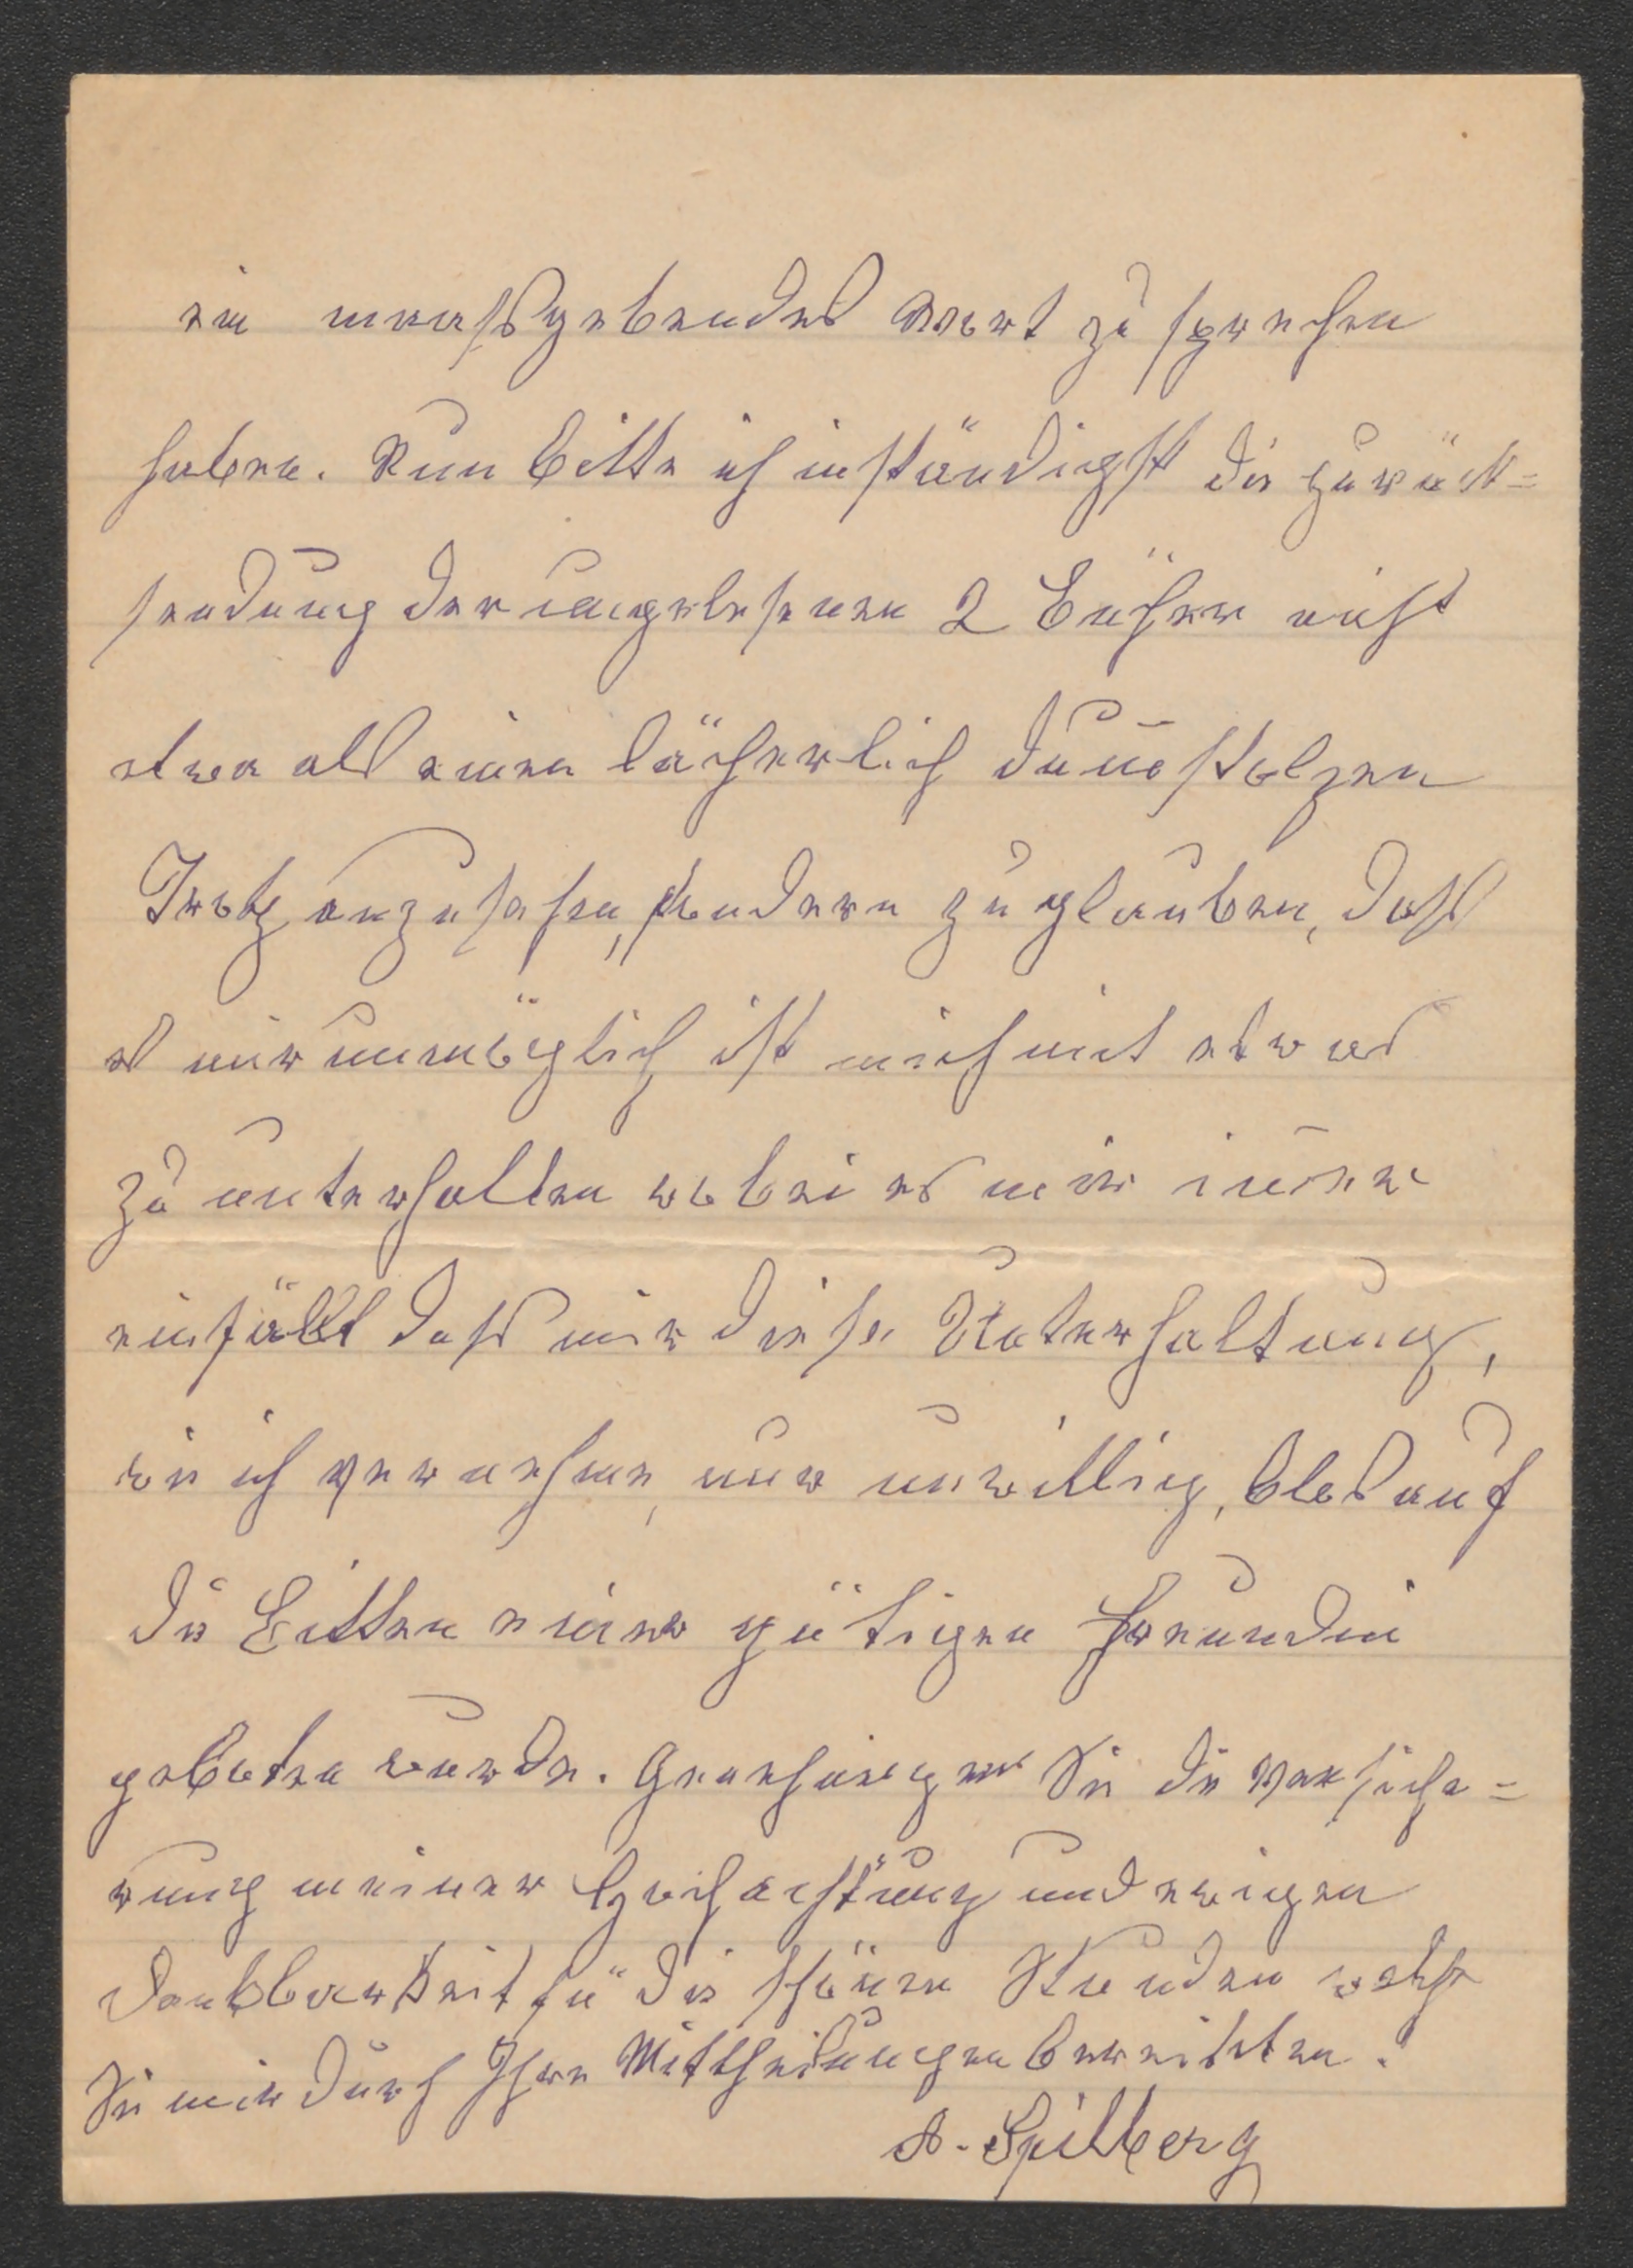 ein maaßgebendes Wort zu sprechen
haben. Nun bitte ich inständigst die Zurück=
sendung der ungelesenen 2 Bücher nicht
etwa als einen lächerlich dum̄stolzen
Trotz anzusehen, sondern zu glauben, daß
es mir unmöglich ist mich mit etwas
zu unterhalten wobei es mir im̄er
einfällt daß mir diese Unterhaltung,
wie ich vernehme, nur unwillig, blos auf
die Bitten einer gütigen Freundin
geboten wurde. Genehmigen Sie die Versiche=
rung meiner Hochachtung und ewigen
Dankbarkeit fü die schönen Stunden welche
Sie mir durch Ihre Mittheilungen bereiteten.
A. Spilberg